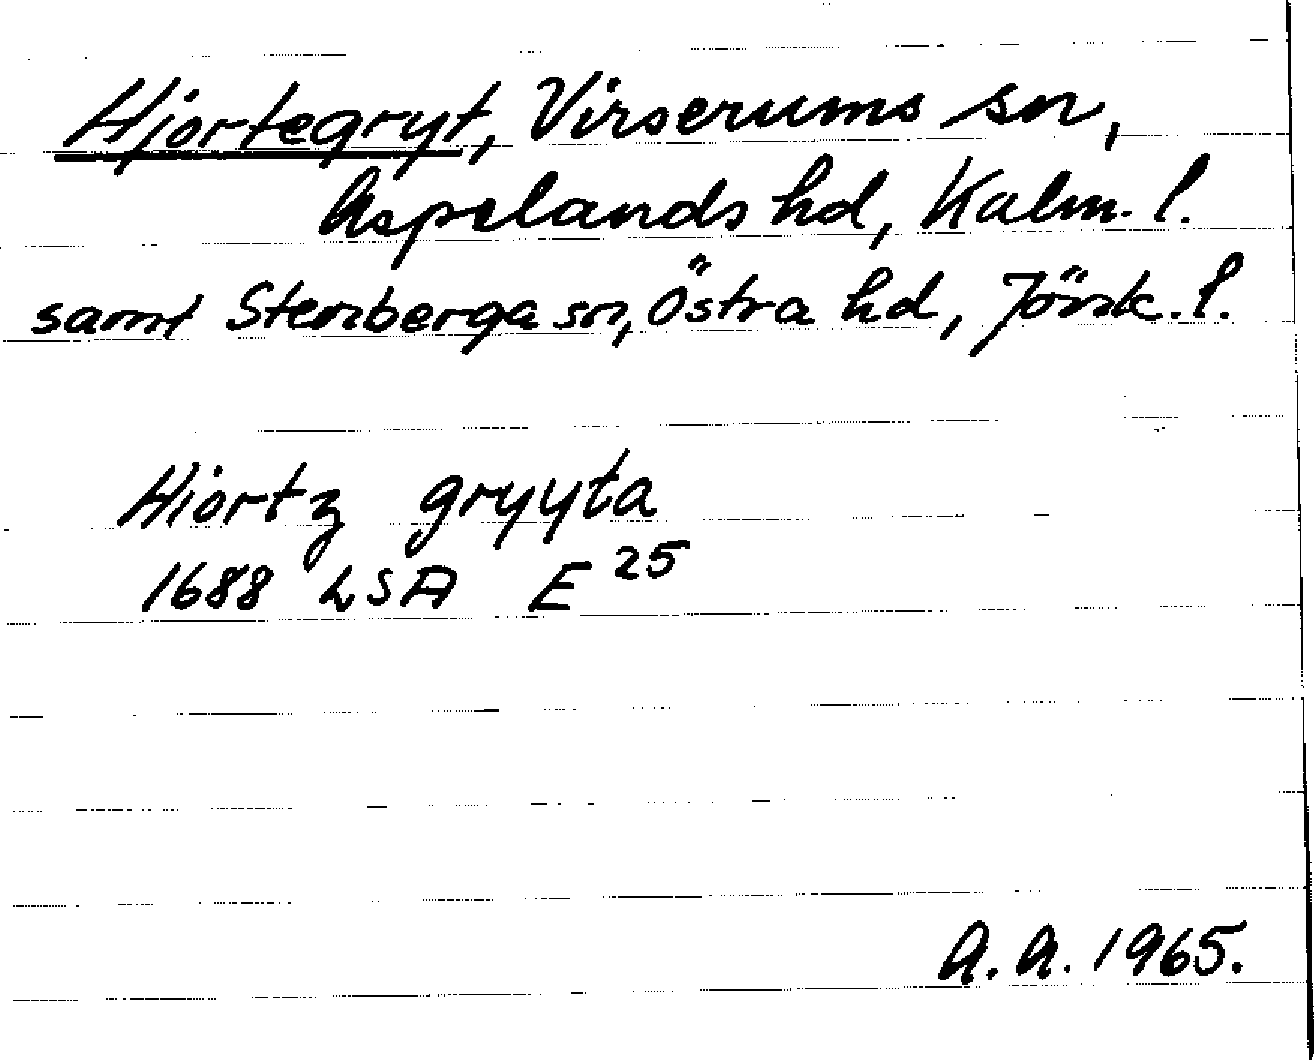 Hjortegryt, Virserums sn,
Aspelands hd, Kalm. l.
samt Stenberga sn, Östra hd, Jönk. l.
Hiortz gryyta
1688 LSA E 25
A. A. 1965.